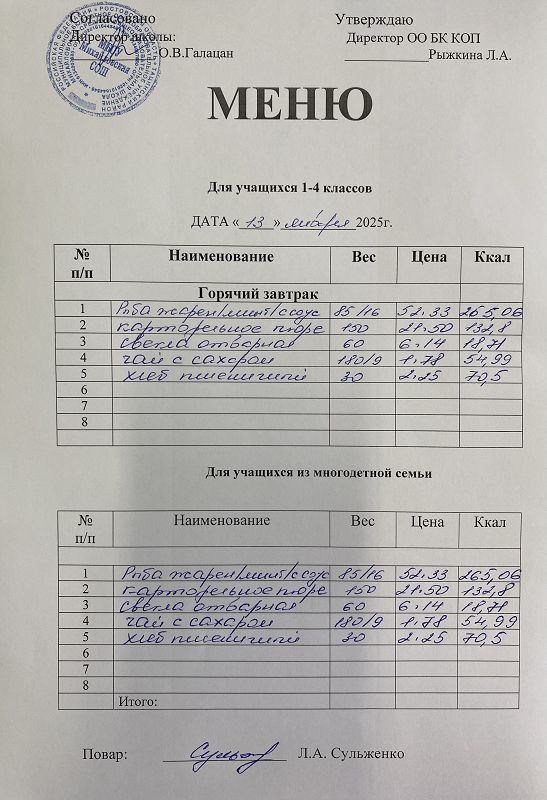 Согласовано Утверждаю
Директор школы: Директор ОО БК КОП
О.В.Галацан Рыжкина Л.А.
МБОУ
Михайловская
СОШ
МЕНЮ
Для учащихся 1-4 классов
ДАТА «13» января 2025г.
№ п/п Наименование Вес Цена Ккал
Горячий завтрак
1 Рыба жарен/минт/с соус 85/16 52.33 265,06
2 картофельное пюре 150 21.50 132,8
3 свекла отварная 60 6.14 18,71
4 чай с сахаром 180/9 1.78 54,99
5 хлеб пшеничный 30 2.25 70,5
6
7
8
Для учащихся из многодетной семьи
№ п/п Наименование Вес Цена Ккал
1 Рыба жарен/минт/с соус 85/16 52.33 265,06
2 картофельное пюре 150 21.50 132,8
3 свекла отварная 60 6.14 18,71
4 чай с сахаром 180/9 1.78 54,99
5 хлеб пшеничный 30 2.25 70,5
6
7
8
Итого:
Повар: Л.А. Сульженко